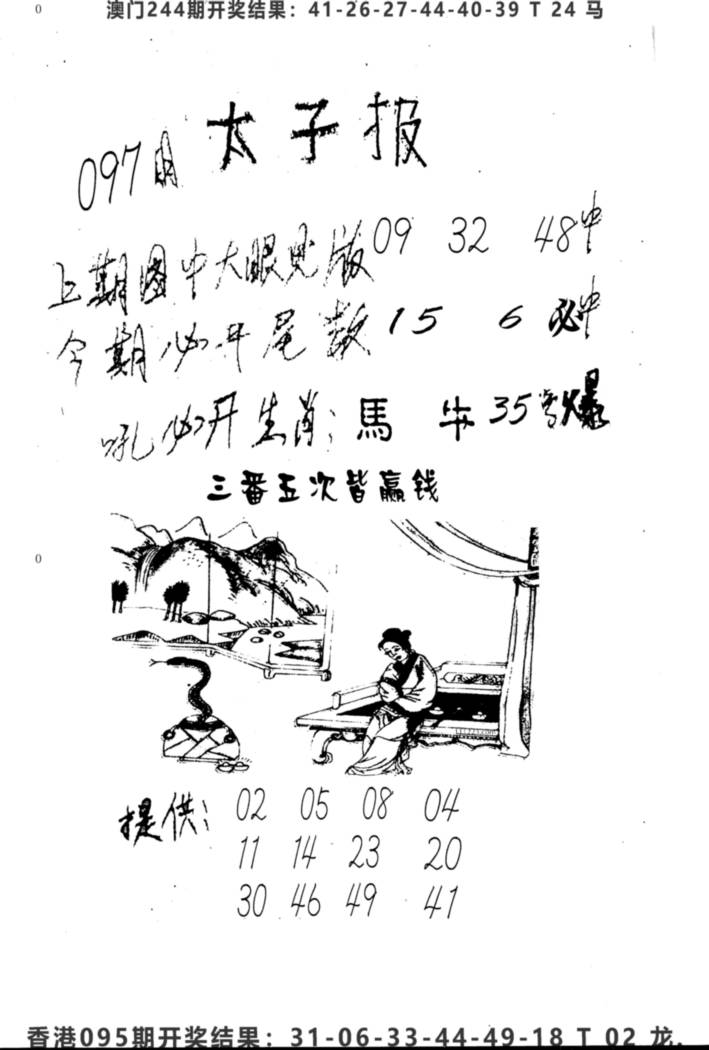 澳门244期开奖结果：41-26-27-44-40-39 T 24 马
太子报
097期
上期图中大眼见版09 32 48中
今期必开尾数15 6必中
必开生肖：馬 牛35 爆
三番五次皆赢钱
提供：02 05 08 04
11 14 23 20
30 46 49 41
香港095期开奖结果：31-06-33-44-49-18 T 02 龙.
0
0